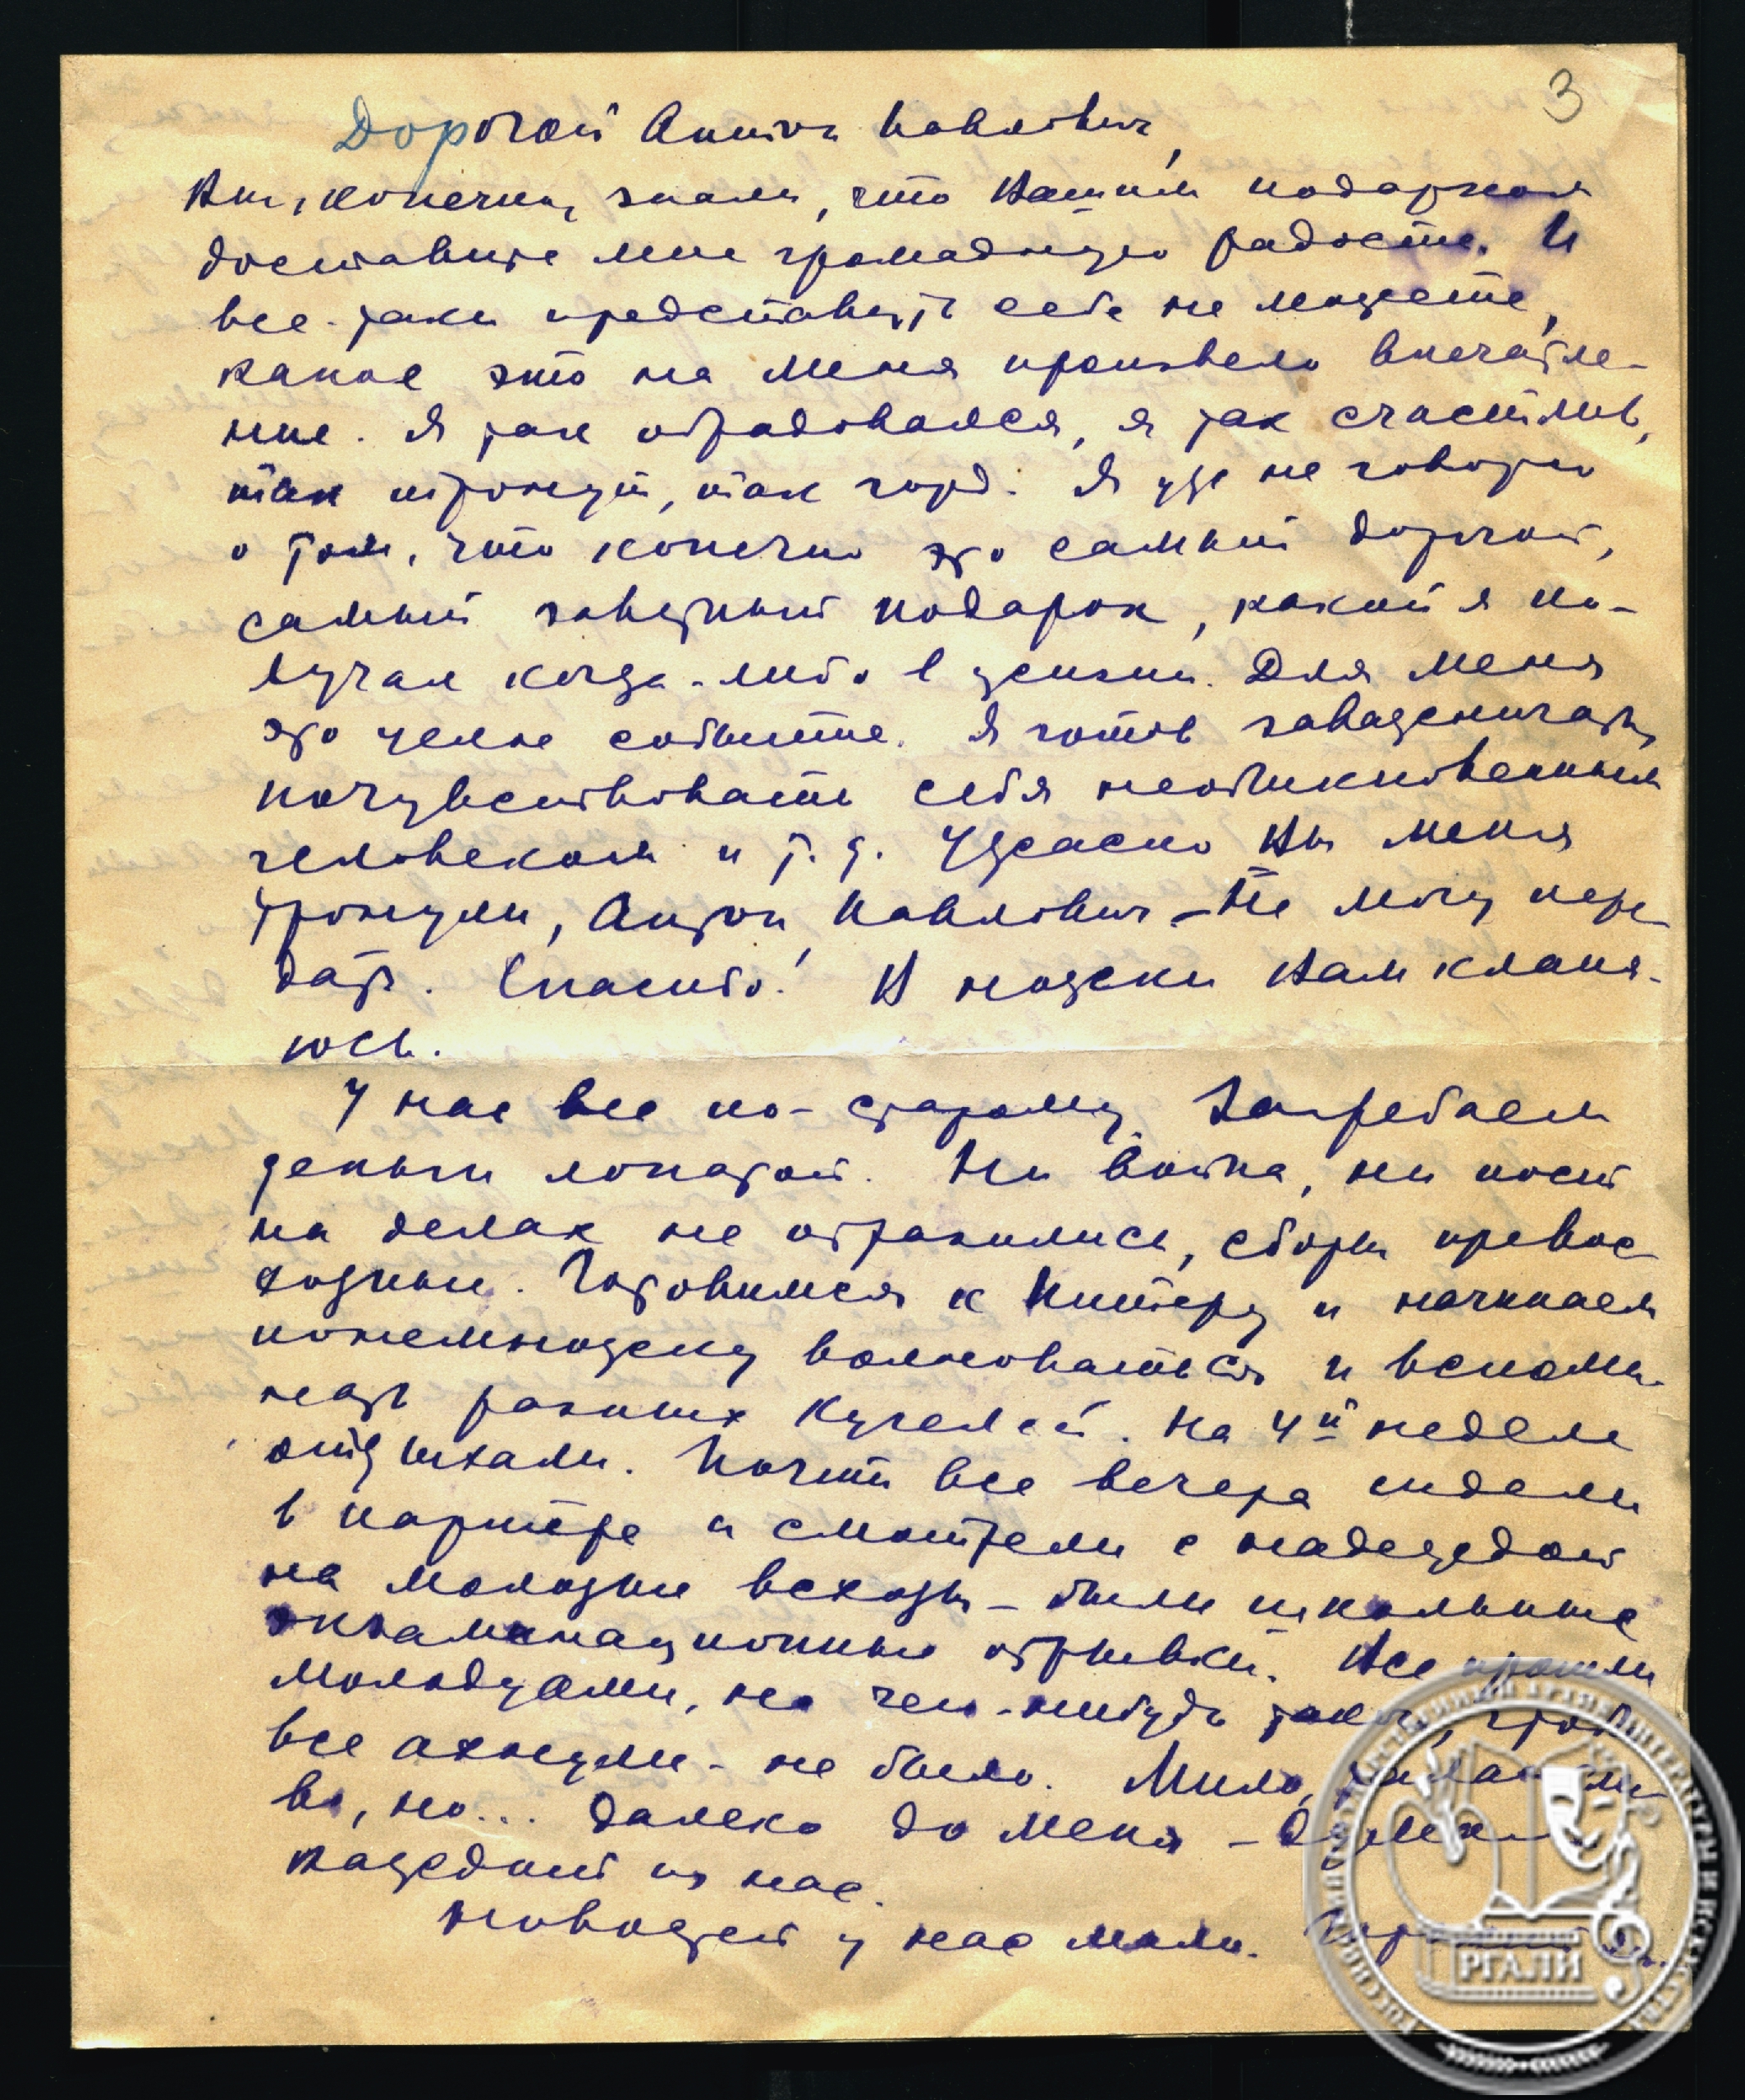 3
Дорогой Антон Павлович,
Вы, конечно, знали, что Вашим подарком
доставите мне громадную радость. И
все-таки представить себе не можете,
какое это на меня произвело впечатле-
ние. Я так обрадовался, я так счастлив,
так тронут, так горд. Я уж не говорю
о том, что конечно это самый дорогой,
самый заветный подарок, какой я по-
лучал когда-либо в жизни. Для меня
это целое событие. Я готов заважничать,
почувствовать себя необыкновенным
человеком и т. д. Ужасно Вы меня
тронули, Антон Павлович – Не могу пере-
дать. Спасибо! В ножки Вам кланя-
юсь.
У нас все по-старому. Загребаем
деньги лопатой. Ни война, ни пост
на делах не отразились, сборы превос-
ходные. Готовимся к Питеру и начинаем
понемножку волноваться и вспоми-
нать разных Кугелей. На 4й неделе
отдыхали. Почти все вечера сидели
в партере и смотрели с надеждой
на молодые всходы – были школьные
экзаменационные отрывки. Все прошли
молодцами, но чего-нибудь такого, чтоб
все ахнули – не было. Мило, талантли-
во, но... далеко до меня – думал
каждый из нас.
Новостей у нас мало.
РГАЛИ